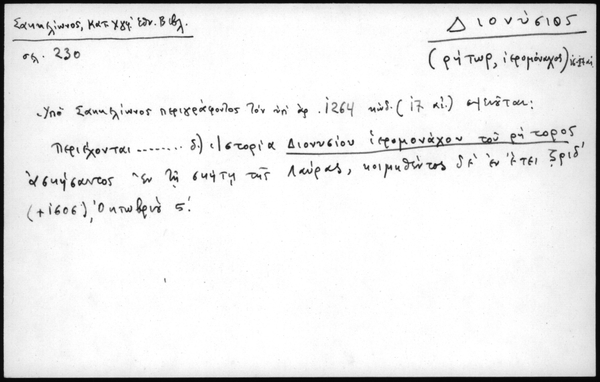 Σακκελίωνος, Κατ. χγφ. Εθν. Βιβλ.
σελ. 230
Διονύσιος
(ρήτωρ, ἱερομόναχος)
Υπό Σακκελίωνος περιγράφοντος τόν ὑπ' ἀρ. 1264 κώδ. (17 αἰ.) σημειοῦται:
Περιέχονται ........ δ) Ιστορία Διονυσίου ἱερομονάχου τοῦ ρήτορος
ἀσκήσαντος ἐν τῇ σκήτῃ τῆς Λαύρας, κοιμηθέντος δέ ἐν ἔτει ζριδ'
(+1606), Ὀκτωβρίου 6.